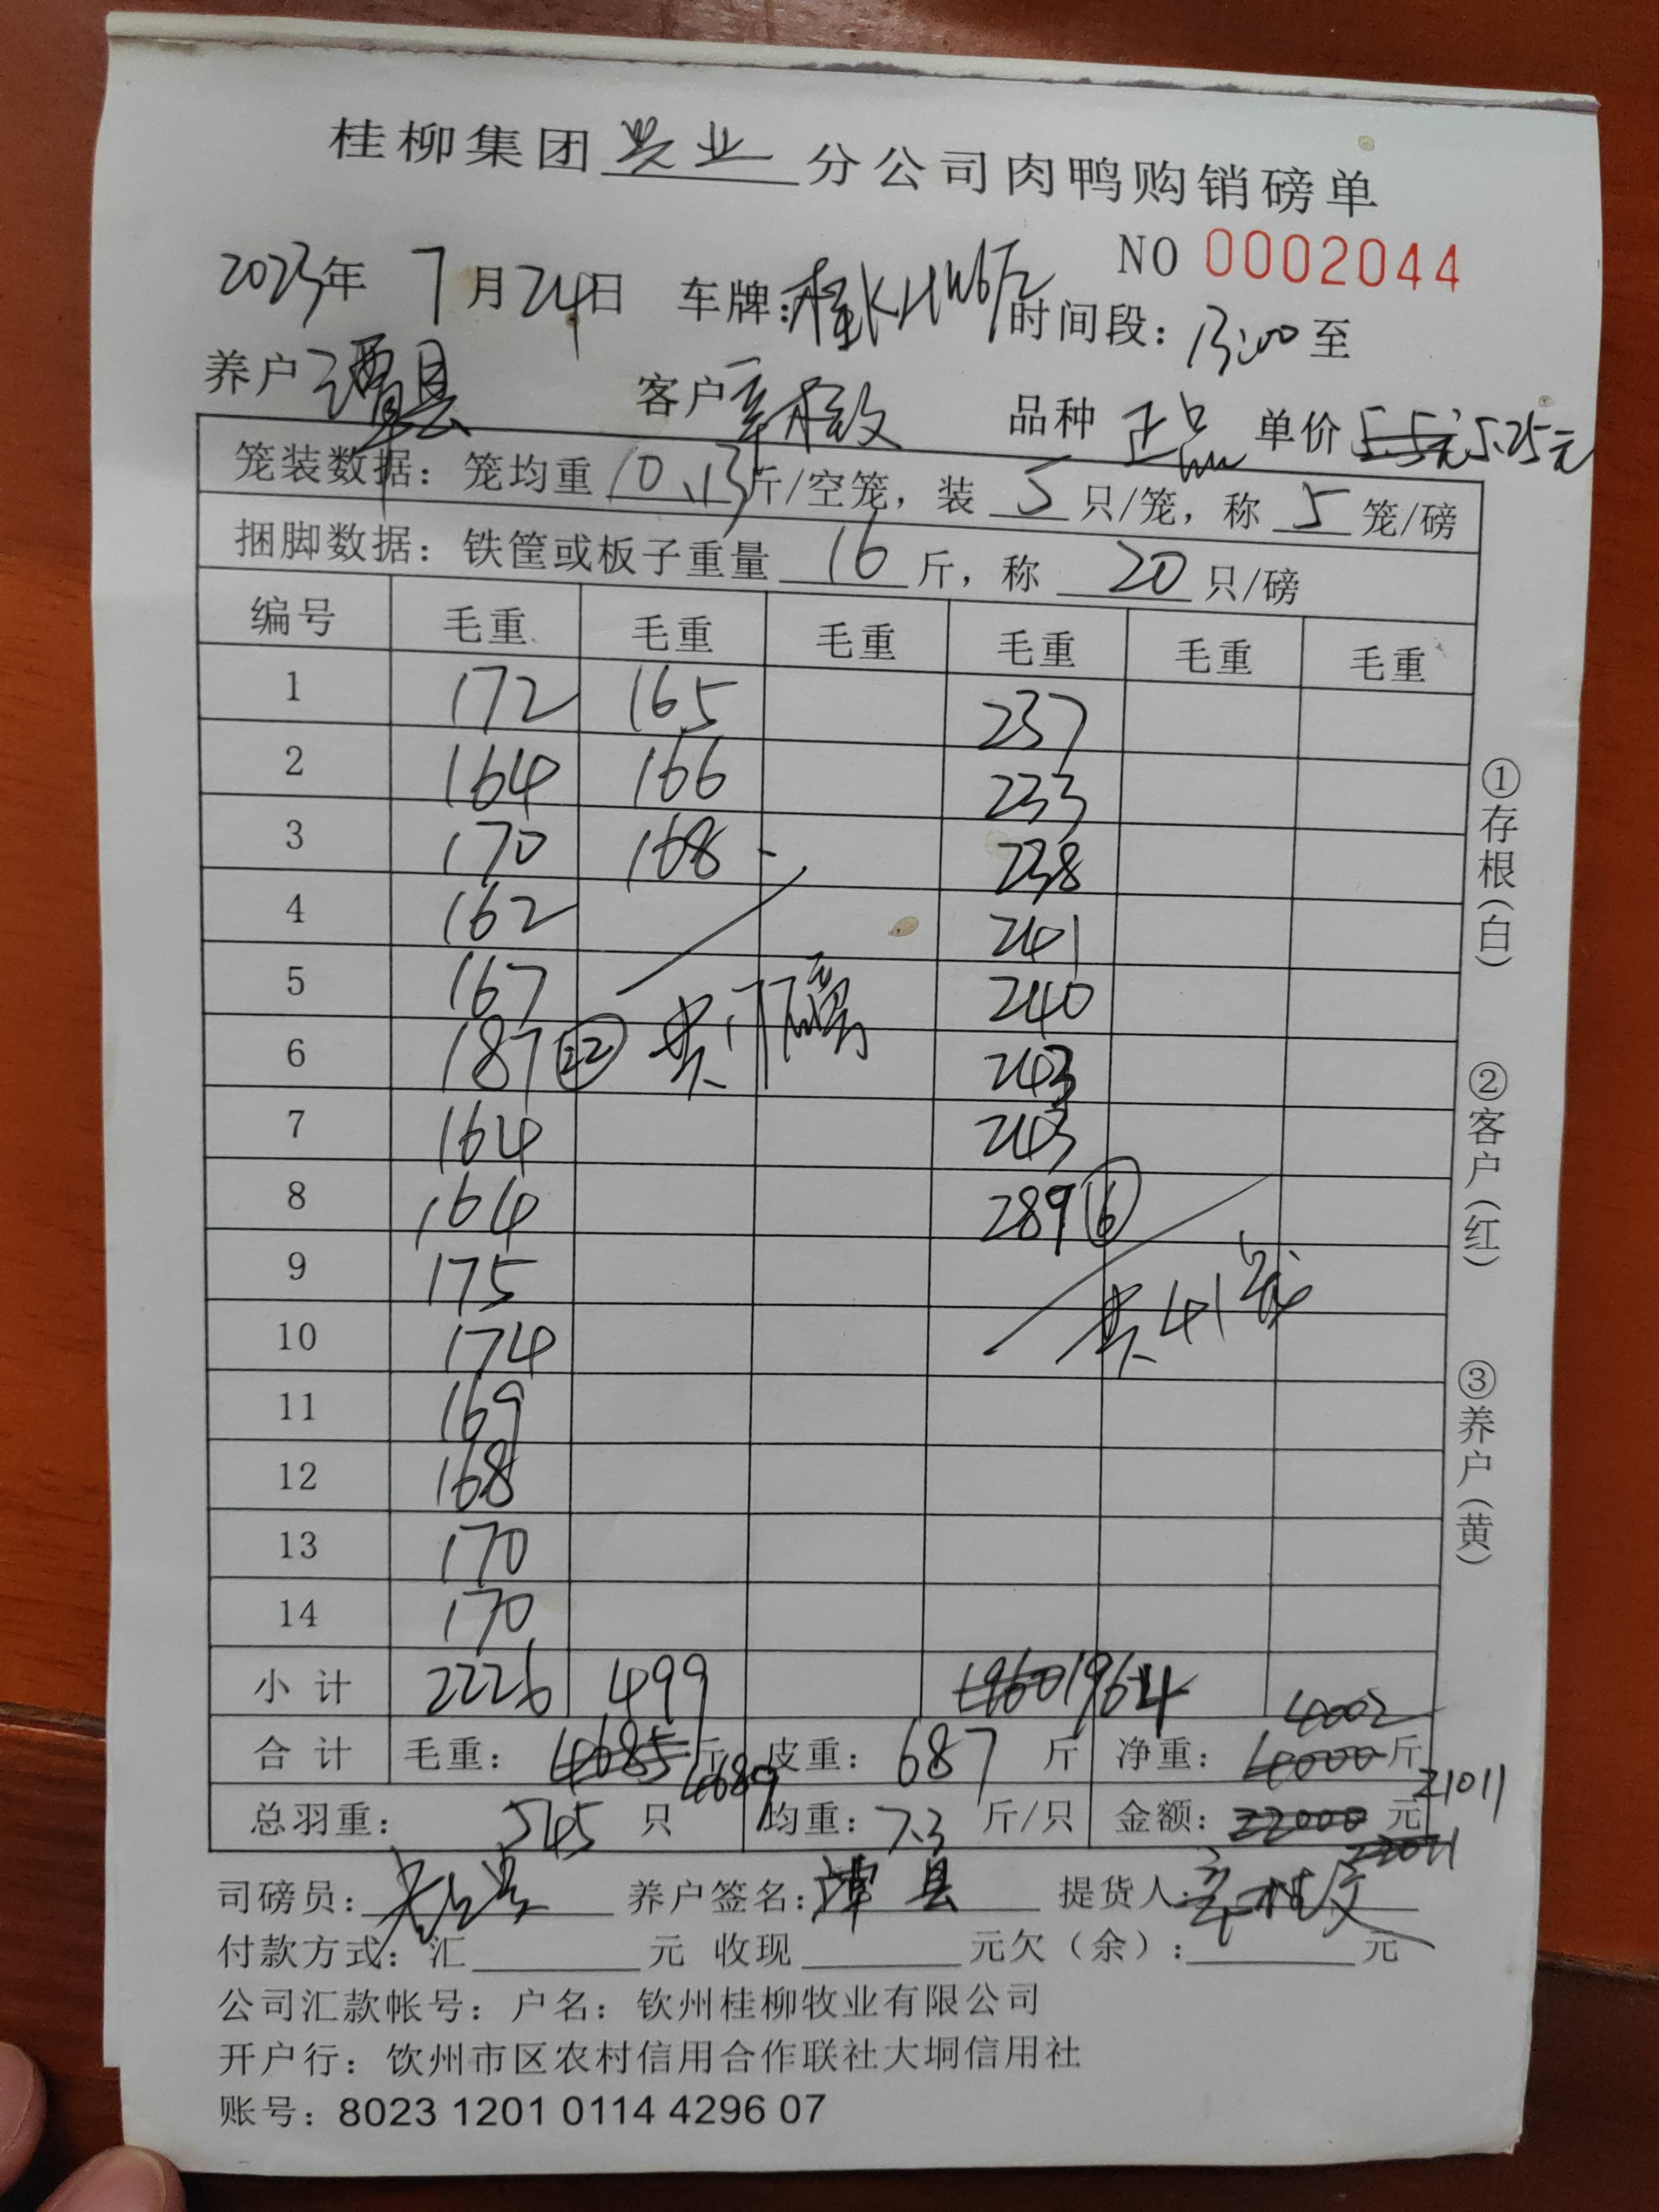 桂柳集团兴业分公司肉鸭购销磅单
NO 0002044
2023年 7月24日 车牌: 时间段：13:00至
养户 客户 品种 正品 单价 5.5元 5.25元
笼装数据：笼均重 10.13 斤/空笼，装 5 只/笼，称 5 笼/磅
捆脚数据：铁筐或板子重量 16 斤，称 20 只/磅
编号 毛重 毛重 毛重 毛重 毛重 毛重
1 172 165 237
2 164 166 233
3 170 168 238
4 162 241
5 167 240
6 187 22 共 243
7 164 243
8 164 289 6
9 175 共41笼
10 174
11 169
12 168
13 170
14 170
小计 2226 499 1960 1964
合计 毛重：4685斤 4689 皮重：687 斤 净重：4000斤 4002
总羽重：545 只 均重：7.3 斤/只 金额：22000 元 22011 21011
司磅员： 养户签名：谭县 提货人：
付款方式：汇 元 收现 元欠（余）： 元
公司汇款帐号：户名：钦州桂柳牧业有限公司
开户行：钦州市区农村信用合作联社大垌信用社
账号：8023 1201 0114 4296 07
①存根（白）
②客户（红）
③养户（黄）